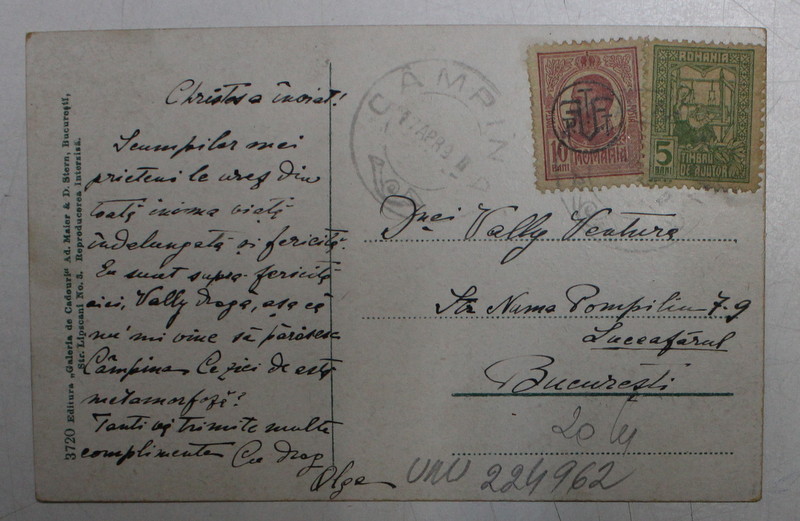 Christos a înviat!
Scumpilor mei
prieteni le urez din
toată inima viață
îndelungată și fericită.
Eu sunt supra-fericită
aici, Vally dragă, așa că
nu'mi vine să părăsesc
Câmpina. Ce zici de astă
metamorfoză?
Tanti vă trimite multe
complimente. Cu drag
Olga
3720 Editura „Galeria de Cadouri" Ad. Maier & D. Stern, Bucureşti,
Str. Lipscani No. 3. Reproducerea Interzisă.
CÂMPINA
17 APR 9
10
BANI
ROMANIA
ROMANIA
5
BANI
TIMBRU
DE AJUTOR
Dnei Vally Ventura
Str Numa Pompiliu 7-9
Luceafărul
București
20 lei
224962